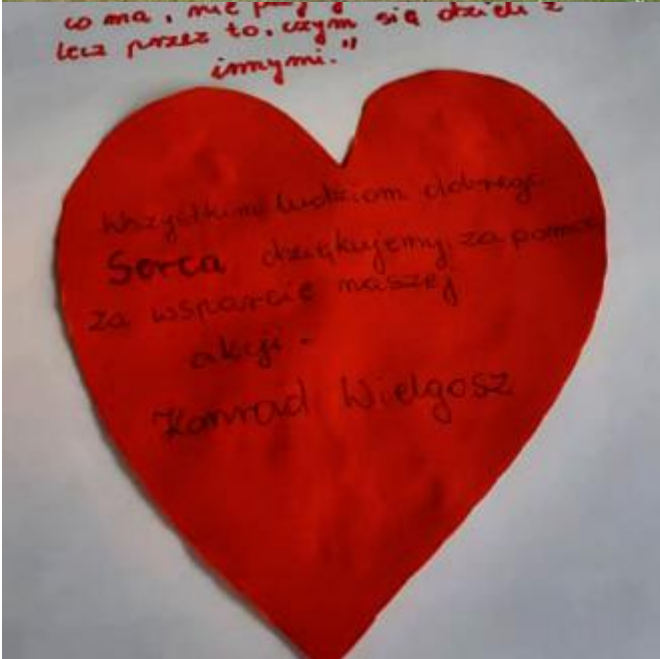 co ma, nie przez
lecz przez to, czym się dzieli z
innymi."
Wszystkim ludziom dobrego
Serca dziękujemy za pomoc
za wsparcie naszej
akcji -
Konrad Wielgosz